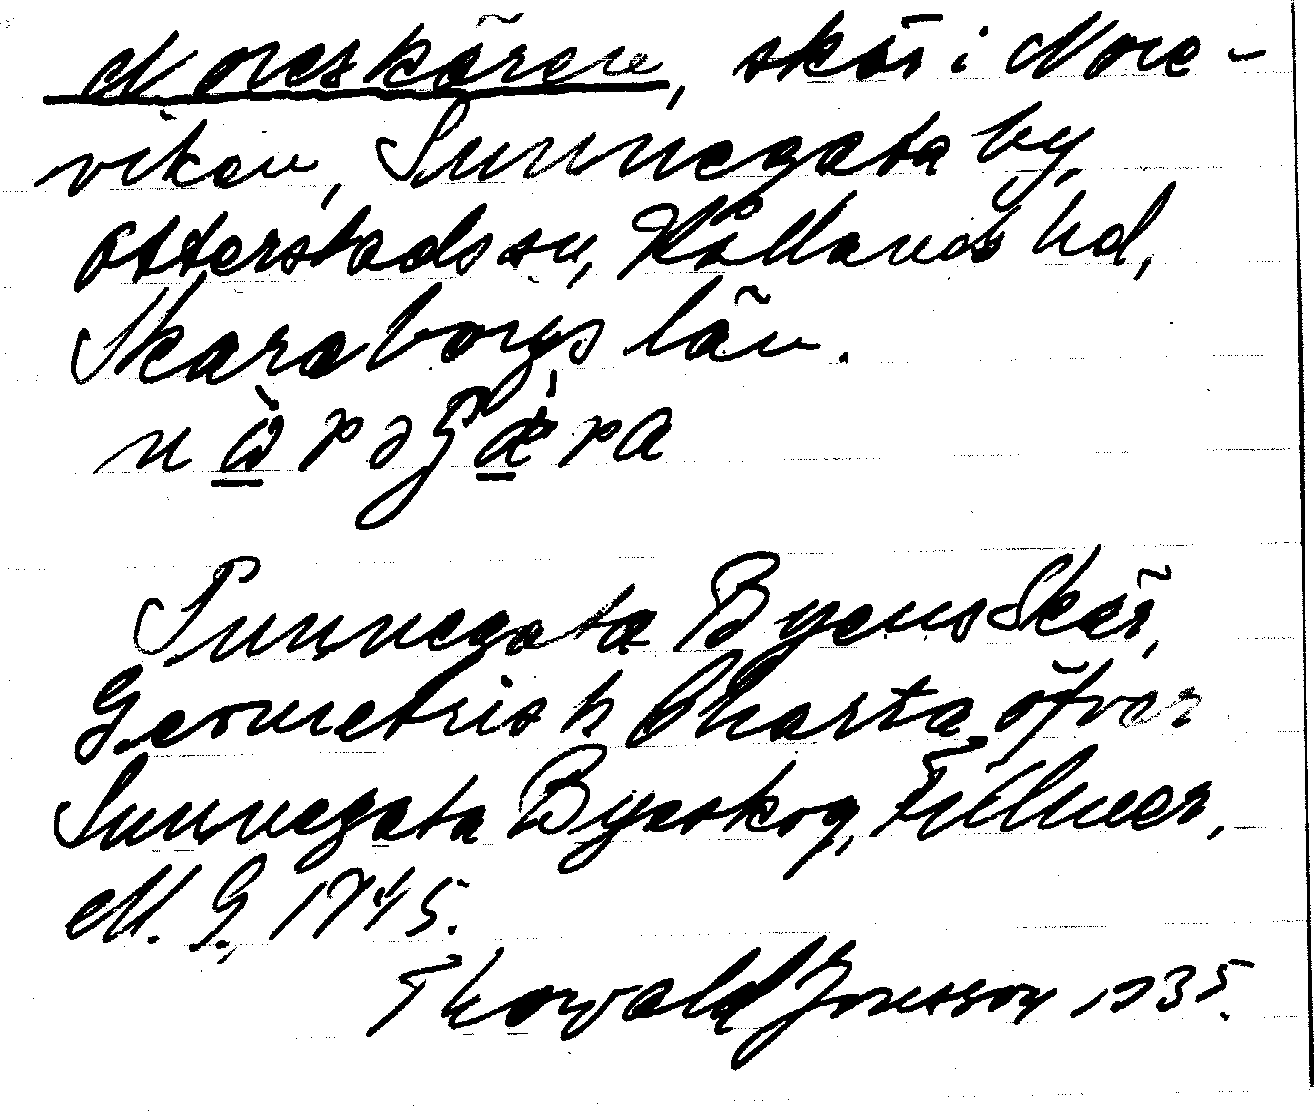 Noreskären, skär i Nore-
viken, Sunnegata by,
Otterstads sn, Kållands hd,
Skaraborgs län.

Sunnegata Byens Skär,
Geometrisk Charta öfver
Sunnegata Byeskog, Fillmer,
M. G. 1745.
Thorvald Jonsson 1935.